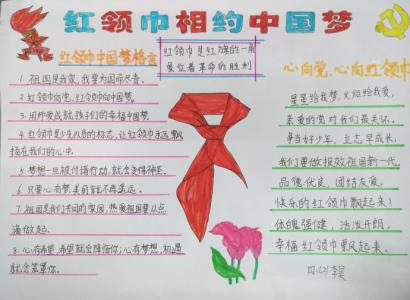 红领巾相约中国梦
红领巾中国梦格言
1. 祖国是我家,我要为国而尽责。
2. 红领巾向党,红领巾向中国梦。
3. 用所爱成就孩子们的幸福中国梦
4. 红领巾是少先队员的标志,让红领巾永远飘
扬在我们的心中。
5. 梦想一旦被付诸行动,就会变得神圣。
6. 只要心有梦,美丽就不再遥远。
7. 祖国是我们共同的家园,热爱祖国要从点
滴做起。
8. 心有希望,希望就会降临你,心有梦想,机遇
就会笼罩你。
红领巾是红旗的一角
象征着革命的胜利
心向党,心向红领巾
星星给我梦,火炬给我爱,
亲爱的党对我们最关怀。
争当好少年,立志早成长,
我们要做报效祖国新一代。
品德优良,团结友爱,
快乐的红领巾飘起来!
体魄强健,活泼开朗,
幸福红领巾飘起来。
四(2)李昊